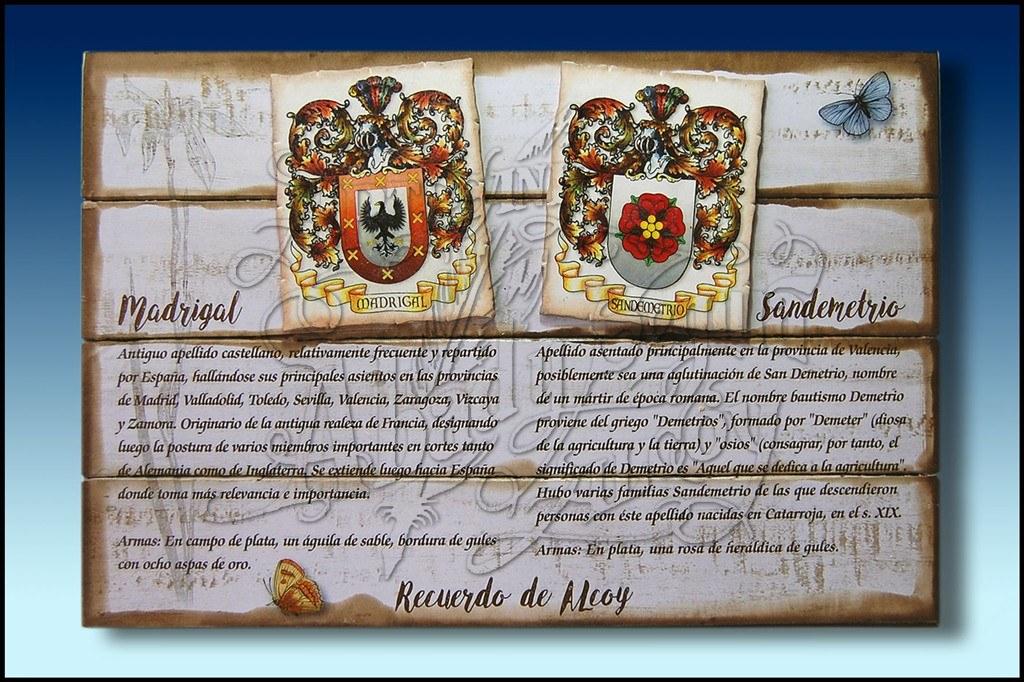 MADRIGAL
SANDEMETRIO
Madrigal
Sandemetrio
Antiguo apellido castellano, relativamente frecuente y repartido
por España, hallándose sus principales asientos en las provincias
de Madrid, Valladolid, Toledo, Sevilla, Valencia, Zaragoza, Vizcaya
y Zamora. Originario de la antigua realeza de Francia, designando
luego la postura de varios miembros importantes en cortes tanto
de Alemania como de Inglaterra. Se extiende luego hacia España
donde toma más relevancia e importancia.
Armas: En campo de plata, un águila de sable, bordura de gules
con ocho aspas de oro.
Apellido asentado principalmente en la provincia de Valencia,
posiblemente sea una aglutinación de San Demetrio, nombre
de un mártir de época romana. El nombre bautismo Demetrio
proviene del griego "Demetrios", formado por "Demeter" (diosa
de la agricultura y la tierra) y "osios" (consagrar, por tanto, el
significado de Demetrio es "Aquel que se dedica a la agricultura".
Hubo varias familias Sandemetrio de las que descendieron
personas con éste apellido nacidas en Catarroja, en el s. XIX.
Armas: En plata, una rosa de heráldica de gules.
Recuerdo de Alcoy